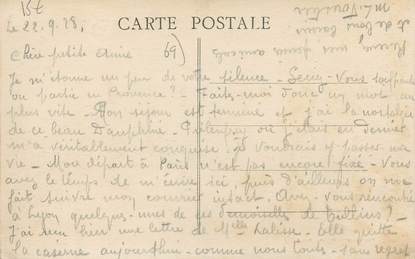 CARTE POSTALE
le 22.9.28,
69)
Chère petite amie
Je m'étonne un peu de votre silence - Seriez-vous souffrante
ou partie en Provence ? - Faites-moi donc un mot au
plus vite - Mon séjour est terminé et j'ai la nostalgie
de ce beau Dauphiné - où j'étais en dernier
m'a véritablement conquise, je voudrais y passer ma
vie - Mon départ à Paris n'est pas encore fixé - Vous
avez le temps de m'écrire ici, puis d'ailleurs on me
fait suivre mon courrier intact. Avez-vous rencontré
à Lyon quelques-unes de ces demoiselles de ?
J'ai reçu hier une lettre de Melle - Elle quitte
la caserne aujourd'hui - comme nous toutes - sans regret
et de bons baisers